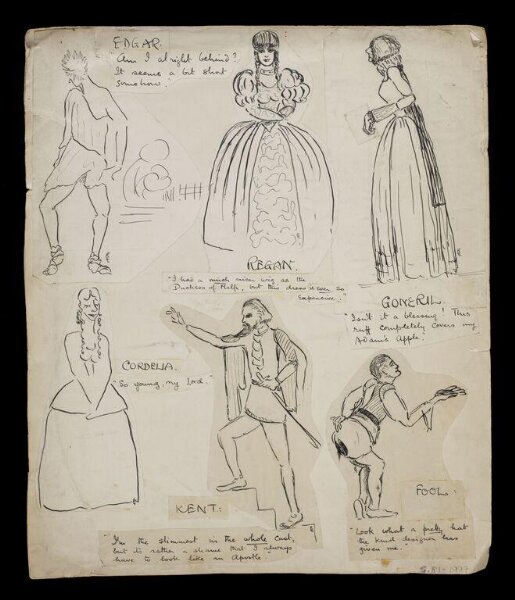 EDGAR.
"Am I alright behind?
It seems a bit short
somehow.
REGAN.
"I had a much nicer wig as the
Duchess of Malfi, but this dress is even so
Expensive."
GONERIL.
"Isn't it a blessing! This
ruff completely covers my
Adam's Apple."
CORDELIA.
"So young, my Lord."
KENT:
"I'm the slimmest in the whole cast,
but it's rather a shame that I always
have to look like an Apostle"
FOOL.
"Look what a pretty hat
the kind designer has
given me."
S.81-1997